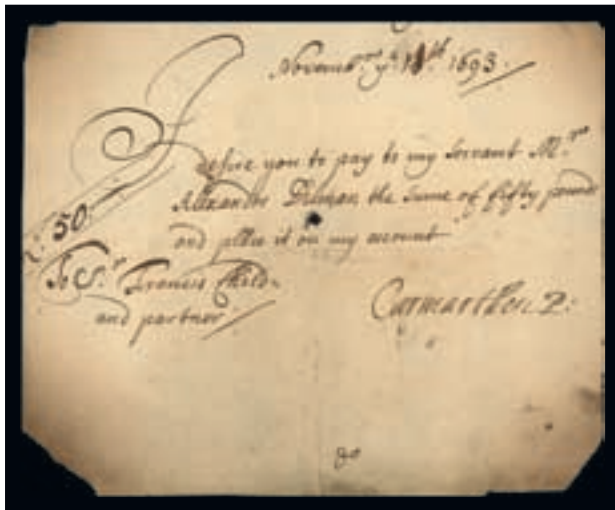 Novemb.r y.e 11.th 1693.
I desire you to pay to my servant M.rs
Allexander Dunan the sume of fifty pounds
and place it on my account
50
To S.r Francis Child
and partner
Carmarthen P: